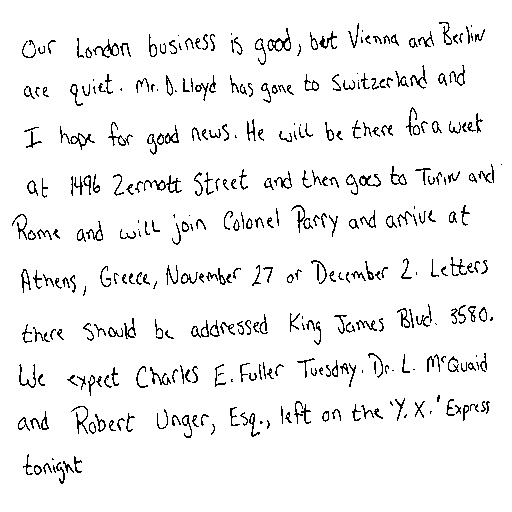 Our London business is good, but Vienna and Berlin
are quiet. Mr. D. Lloyd has gone to Switzerland and
I hope for good news. He will be there for a week
at 1496 Zermott Street and then goes to Turin and
Rome and will join Colonel Parry and arrive at
Athens, Greece, November 27 or December 2. Letters
there should be addressed King James Blvd. 3580.
We expect Charles E. Fuller Tuesday. Dr. L. McQuaid
and Robert Unger, Esq., left on the 'Y.X.' Express
tonight